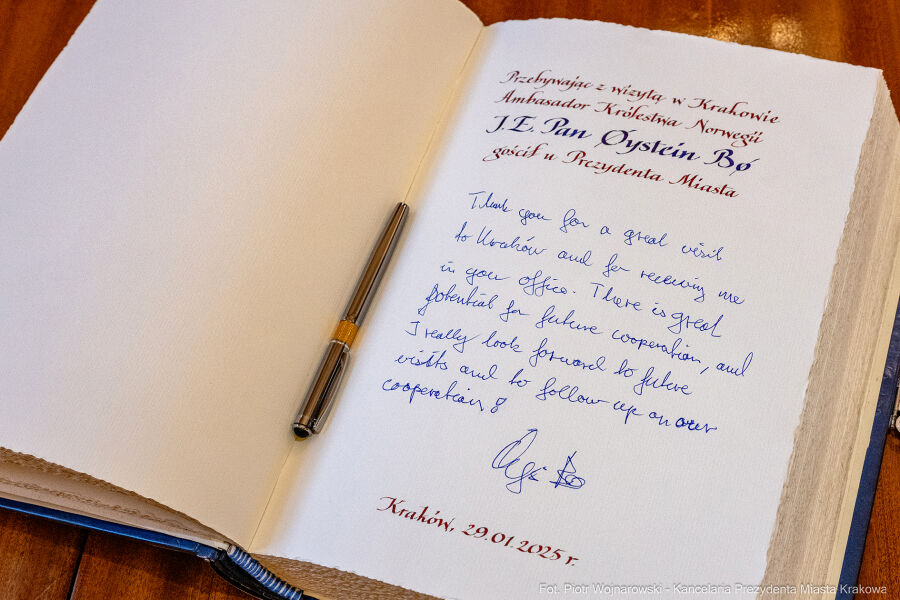 Przebywając z wizytą w Krakowie
Ambasador Królestwa Norwegii
J.E. Pan Øystein Bø
gościł u Prezydenta Miasta
Thank you for a great visit
to Kraków and for receiving me
in your office. There is great
potential for future cooperation, and
I really look forward to future
visits and to follow-up on our
cooperation
Bø
Kraków, 29.01.2025 r.
Fot. Piotr Wojnarowski - Kancelaria Prezydenta Miasta Krakowa